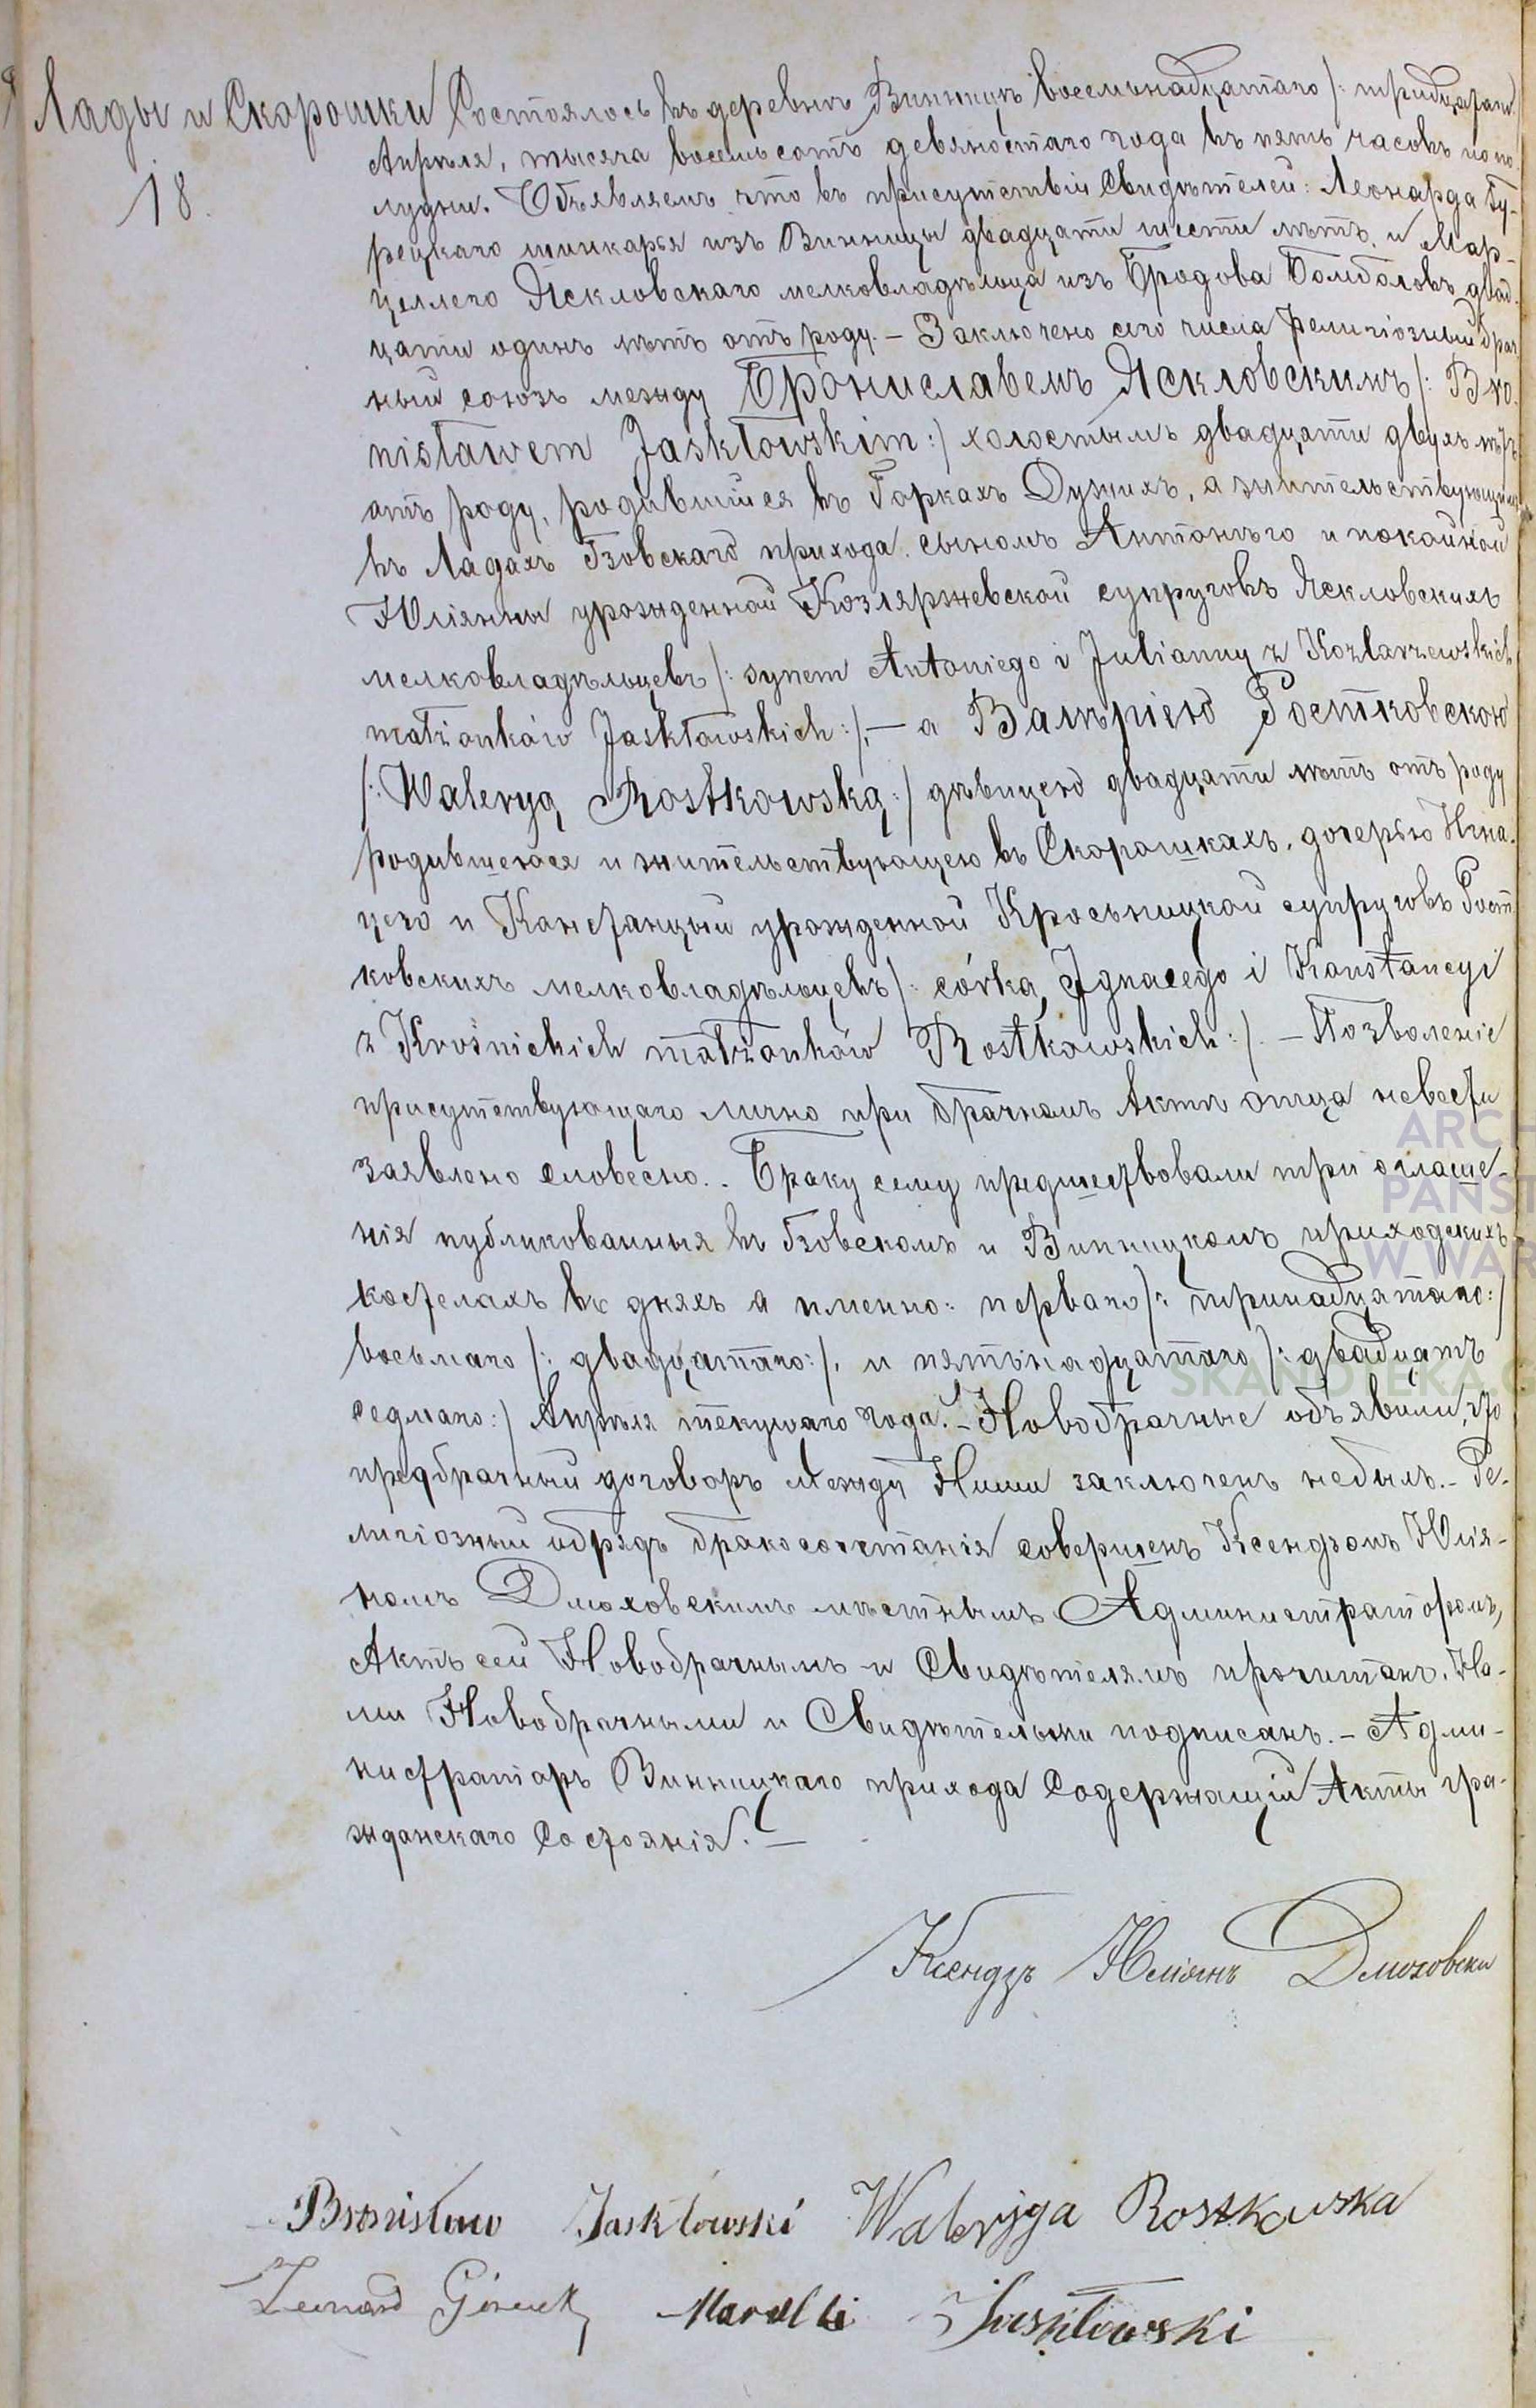 Лады и Скорошки Состоялось въ деревнѣ Винницѣ восемьнадцатаго /: тридцатаго
18.
Апрѣля, тысяча восемьсотъ девяностаго года въ пять часовъ попо
лудни. Объявляемъ что въ присутствіи Свидѣтелей: Леонарда Гу-
рецкаго шинкаря изъ Винницы двадцати шести лѣтъ, и Мар-
целлего Яскловскаго мелковладѣльца изъ Бродова Бомболовъ двад-
цати одинъ лѣтъ отъ роду. – Заключено сего числа религіозный брач
ный союзъ между Брониславемъ Яскловскимъ /: Bro-
nisławem Jaskłowskim :/ холостымъ двадцати двухъ лѣтъ
отъ роду, родившійся въ Горкахъ Дужихъ, а жительствующимъ
въ Ладахъ Гзовскаго прихода сыномъ Антонѣго и покойной
Юліянны урожденной Козляржевской супруговъ Яскловскихъ
мелковладѣльцевъ /: synem Antoniego i Julianny z Kozlarzewskich
małżonków Jaskłowskich :/, – а Валѣріею Ростковскою
/: Waleryą Rostkowską :/ дѣвицею двадцати лѣтъ отъ роду
родившеюся и жительствующею въ Скорошкахъ, дочерью Игна-
цего и Констанцыи урожденной Кросьницкой супруговъ Рост
ковскихъ мелковладѣльцевъ /: córką Ignacego i Konstancyi
z Krośnickich małżonków Rostkowskich :/. – Позволеніе
присутствующаго лично при брачномъ Актѣ отца невесты
заявлено словесно. . Браку сему предшествовали три оглаше-
нія публикованныя въ Гзовскомъ и Винницкомъ приходскихъ
костелахъ въ дняхъ а именно: перваго /: тринадцатаго :/
восьмаго /: двадцатаго :/, и пятьнадцатаго /: двадцать
седмаго :/ Апрѣля текущаго года. – Новобрачные объявили, что
предбрачный договоръ между Ними заключенъ небылъ. – Ре-
лигіозный обрядъ бракосочетанія совершенъ Ксендзомъ Юлія-
номъ Дмоховскимъ мѣстнымъ Администраторомъ,
Актъ сей Новобрачнымъ и Свидѣтелямъ прочитанъ. На-
ми Новобрачными и Свидѣтельми подписанъ. – Адми-
нистраторъ Винницкаго прихода Содержащій Акты гра-
жданскаго Состоянія. –
Ксендзъ Юліянъ Дмоховски
Bronisław Jaskłowski Waleryja Rostkowska
Leonard Górecki Marcelli Jaskłowski
ARCH
PAŃST
W WAR
SKANOTEKA.G